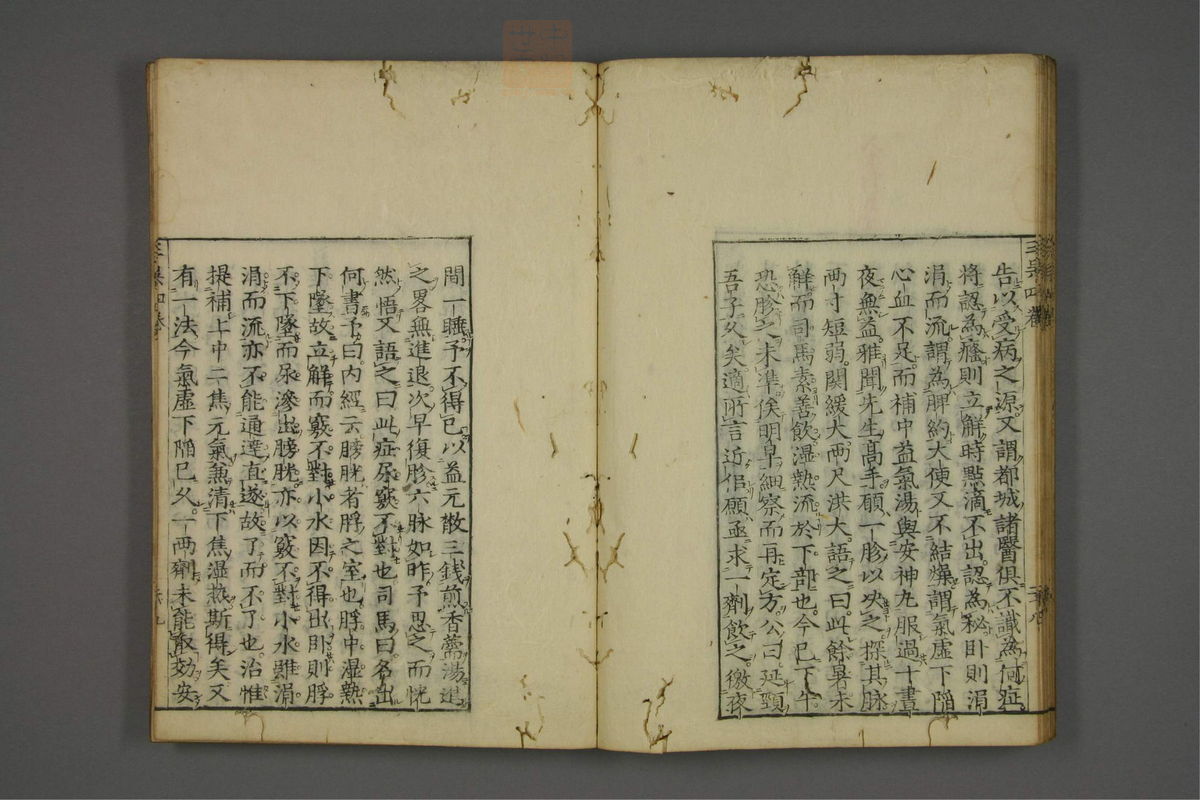 告以受病之源又謂都城諸醫俱不識為何症
將認為癃則立解時點滴不出認為秘卧則涓
涓而流謂為脾約大便又不結燥謂氣虛下陷
心血不足而補中益氣湯與安神丸服過十晝
夜無益雅聞先生高手願一胗以決之探其脉
兩寸短弱関緩大兩尺洪大語之曰此餘晷未
解而司馬素善飲湿熱流於下部也今已下午
恐胗之未準俟明早細察而再定方公曰延頸
吾子久矣適所言近似願亟求一劑飲之徼夜
間一睡予不得已以益元散三錢煎香薷湯進
之畧無進退次早復胗六脉如昨予思之而恍
然悟又語之曰此症尿竅不對也司馬曰名出
何書予曰内經云膀胱者脬之室也脬中湿熱
下墜故立解而竅不對小水因不得出卧則脬
不下墜而尿滲出膀胱亦以竅不對小水雖涓
涓而流亦不能通達直遂故了而不了也治惟
提補上中二焦元氣兼清下焦湿熱斯得矣又
有一法今氣虛下陷已久一兩劑未能取効安